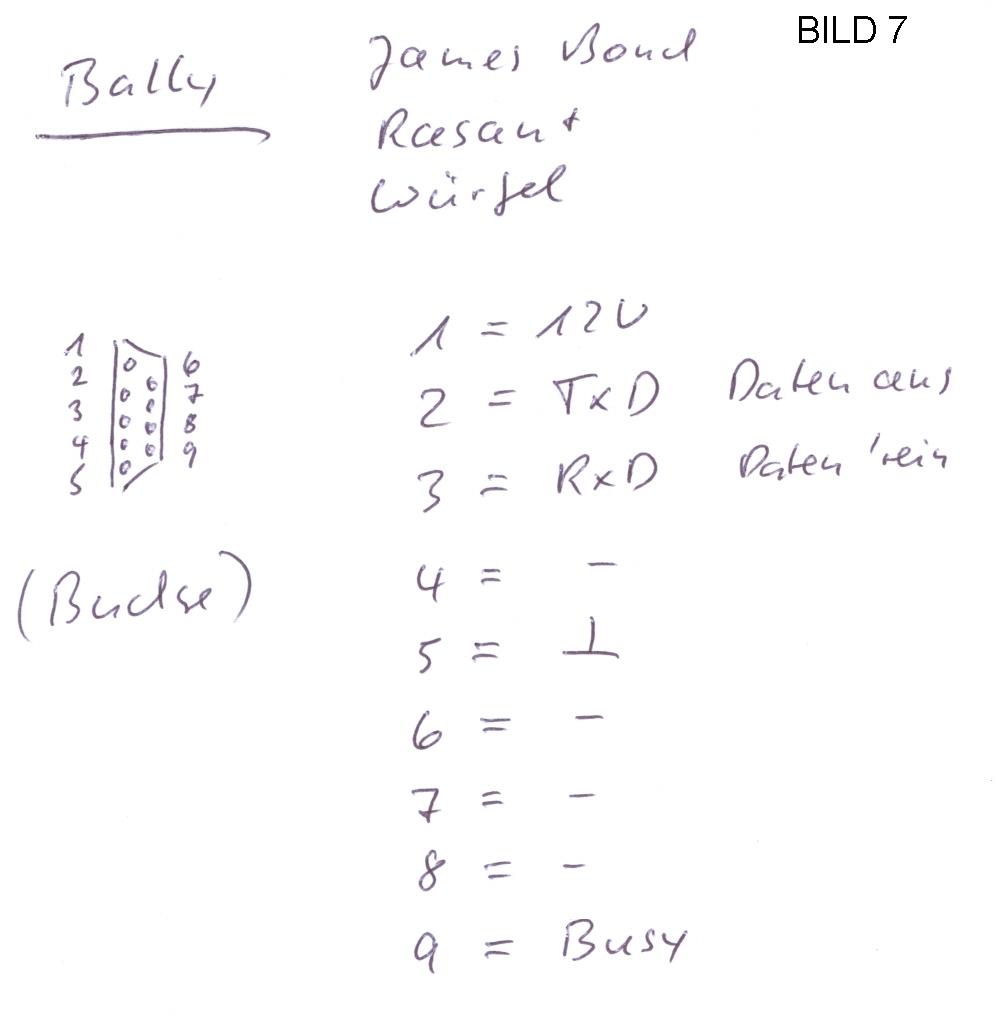 BILD 7
Bally
James Bond
Rasant
Würfel
1 6
2 7
3 8
4 9
5
(Buchse)
1 = 12V
2 = TxD Daten aus
3 = RxD Daten 'rein
4 = -
5 = ⊥
6 = -
7 = -
8 = -
9 = Busy